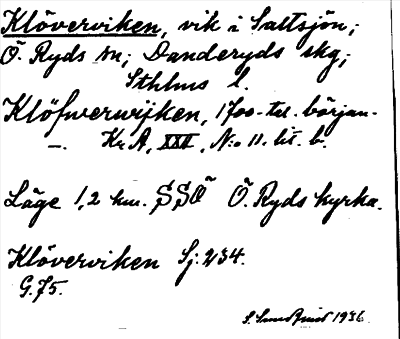 Klöverviken, vik i Saltsjön;
Ö. Ryds sn; Danderyds skg;
Sthlms l.
Klöfwerwijken, 1700-tal. början.
—. Kr. A, XXII, N:o 11. lit. b.
Läge 1,2 km. SSÖ Ö. Ryds kyrka.
Klöverviken Sj. 234.
G. 75.
S. 1936